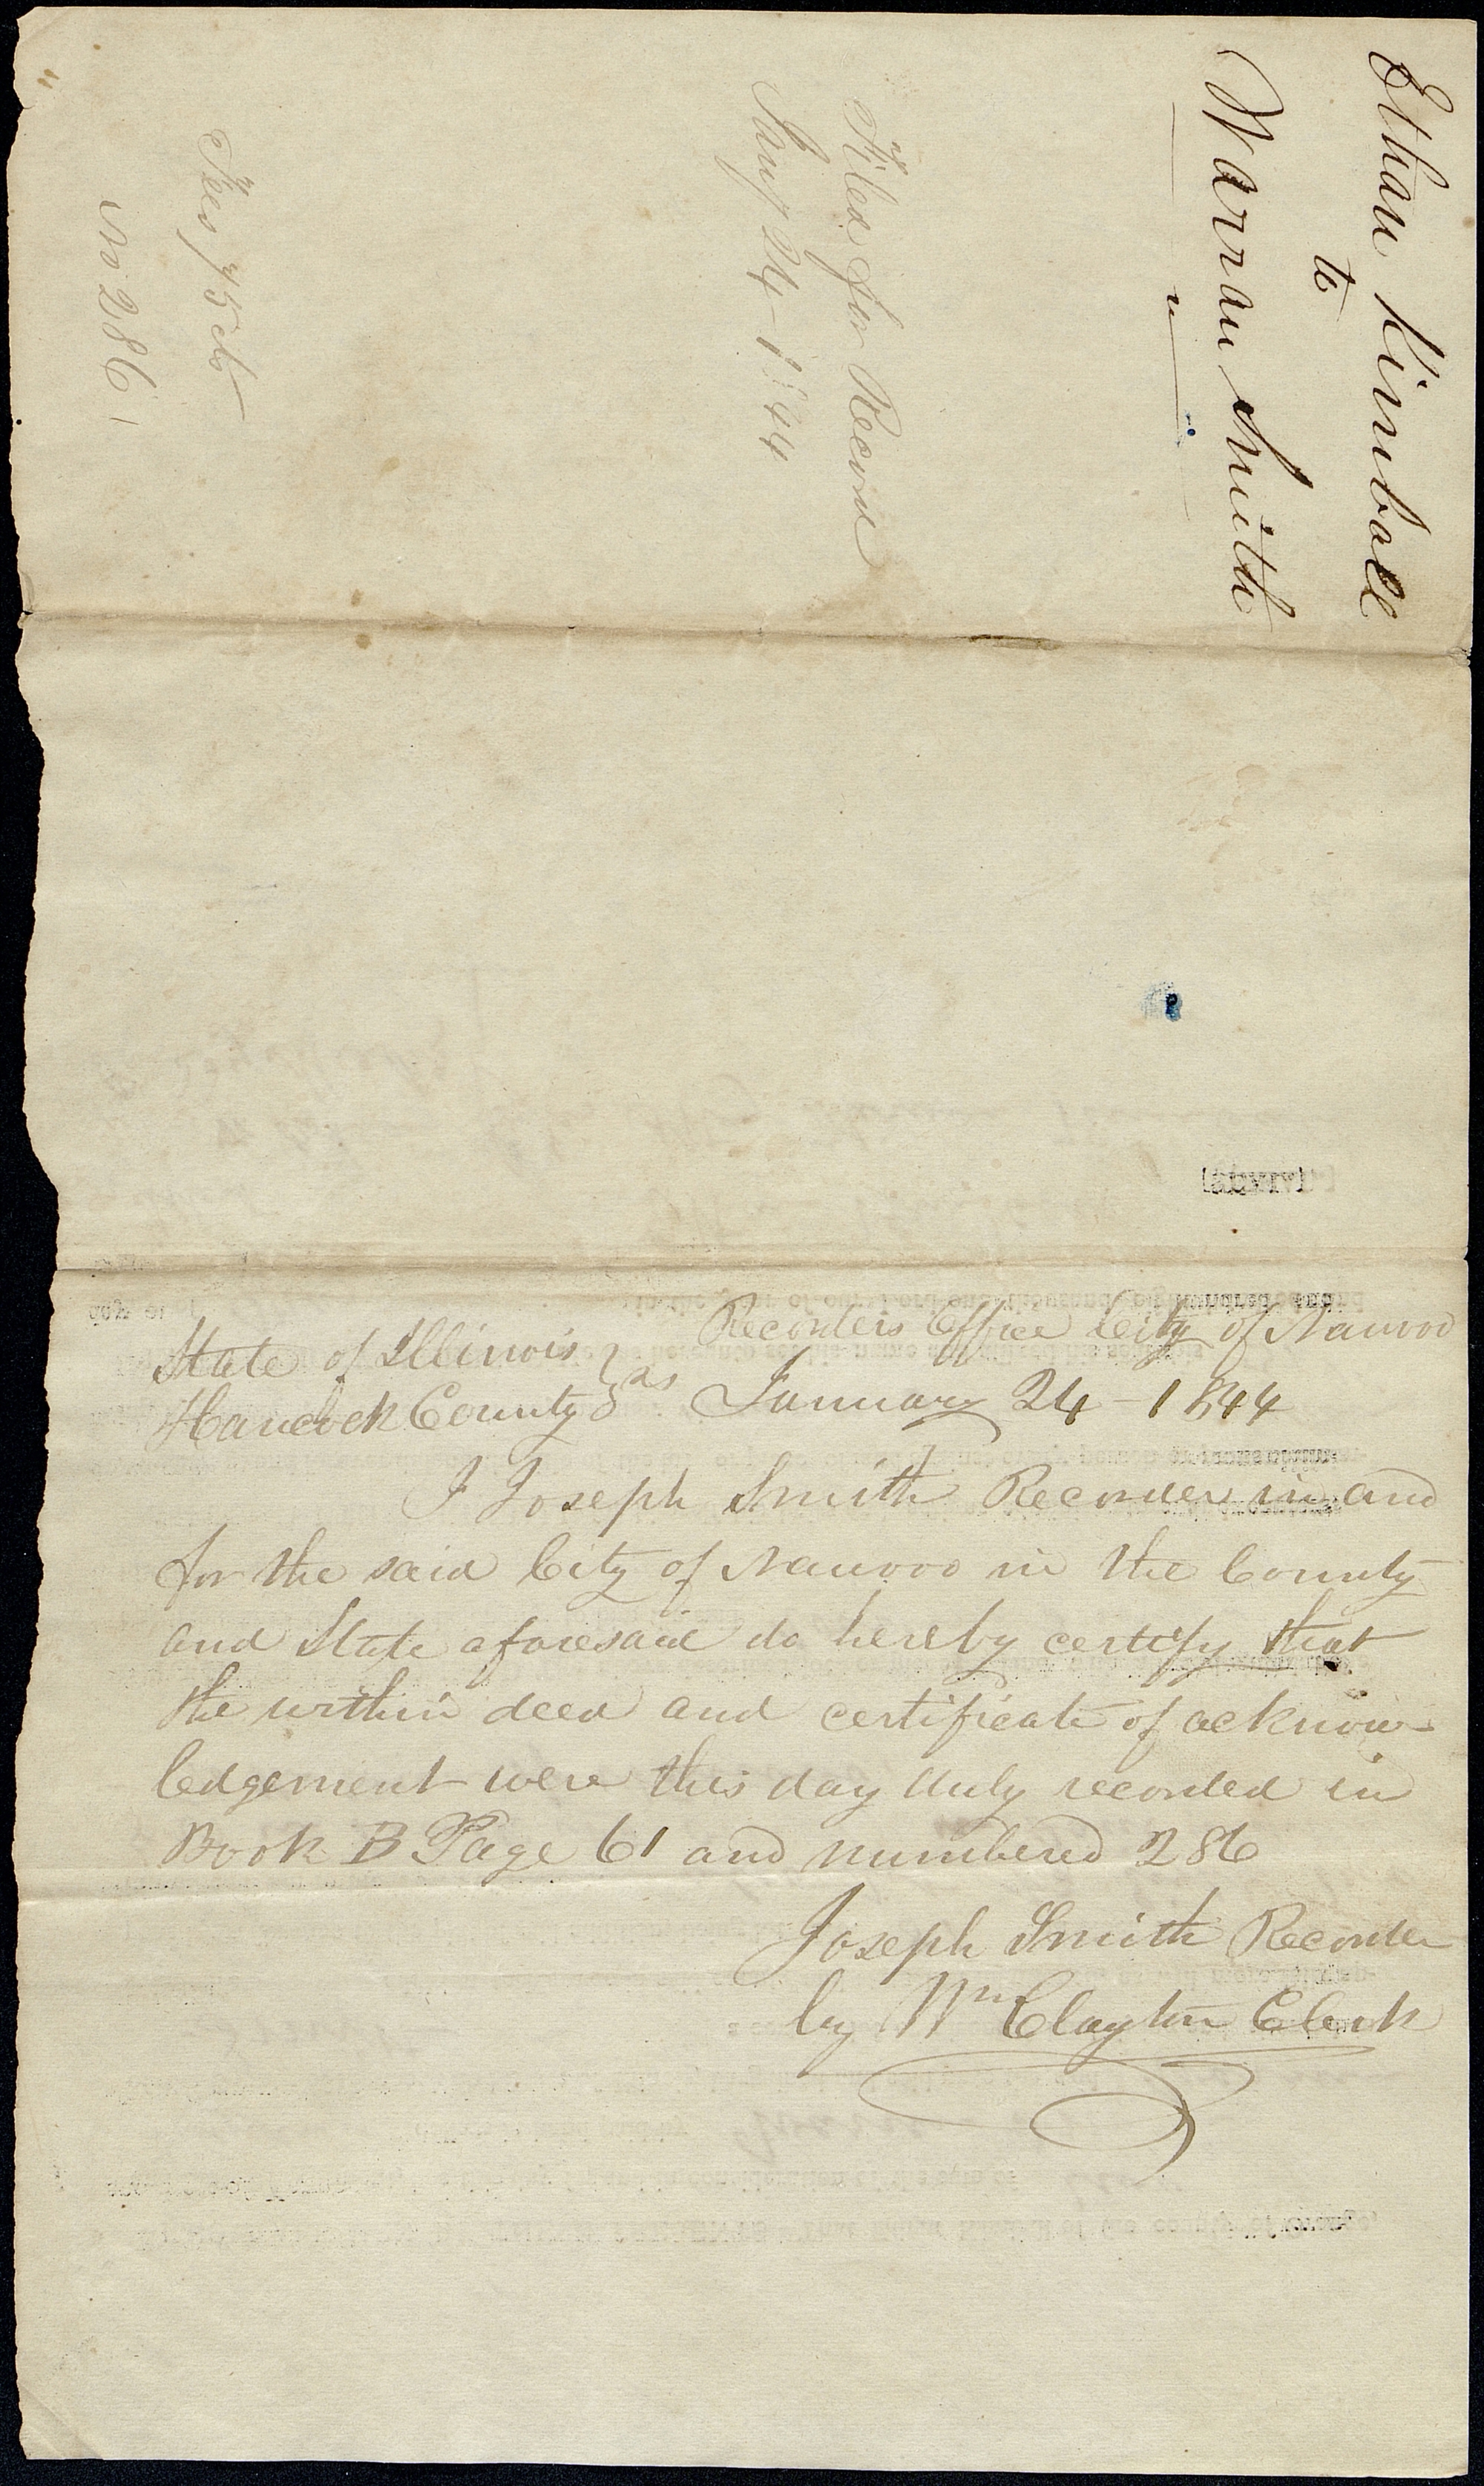 Ethan Kimball
to
Warran Smith
Filed for Record
Jany 24 - 1844
Fees 75 cts
No 286
Recorders Office City of Nauvoo
State of Illinois } ss
Hancock County } January 24 - 1844
I Joseph Smith Recorder in and
for the said City of Nauvoo in the County
and State aforesaid do hereby certify that
the within deed and certificate of acknow-
ledgement were this day duly recorded in
Book B Page 61 and numbered 286
Joseph Smith Recorder
by Wm Clayton Clerk